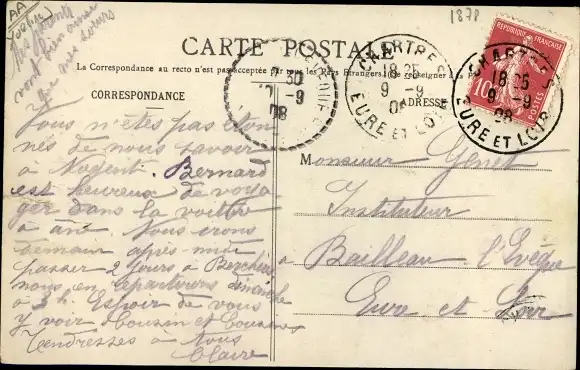 AA
1878
Mes parents
vont bien ainsi
que mes sœurs
CARTE POSTALE
La Correspondance au recto n'est pas acceptée par tous les pays Étrangers (Se renseigner à la Poste)
CORRESPONDANCE
ADRESSE
REPUBLIQUE FRANÇAISE
10
POSTES
CHARTRES
18 25
9 -9
08
EURE ET LOIR
CHARTRES
18 25
9 -9
08
EURE ET LOIR
-9
08
Vous n'êtes pas éton
nés de nous savoir
à Nogent. Bernard
est heureux de voya
ger dans la voiture
à âne. Nous irons
demain après-midi
passer 2 jours à Berchères
nous en repartirons dimanche
à 3 h. Espoir de vous
y voir Cousin et Cousine
Tendresses à tous
Claire
Monsieur Genet
Instituteur
à Bailleau l'Evêque
Eure et Loir